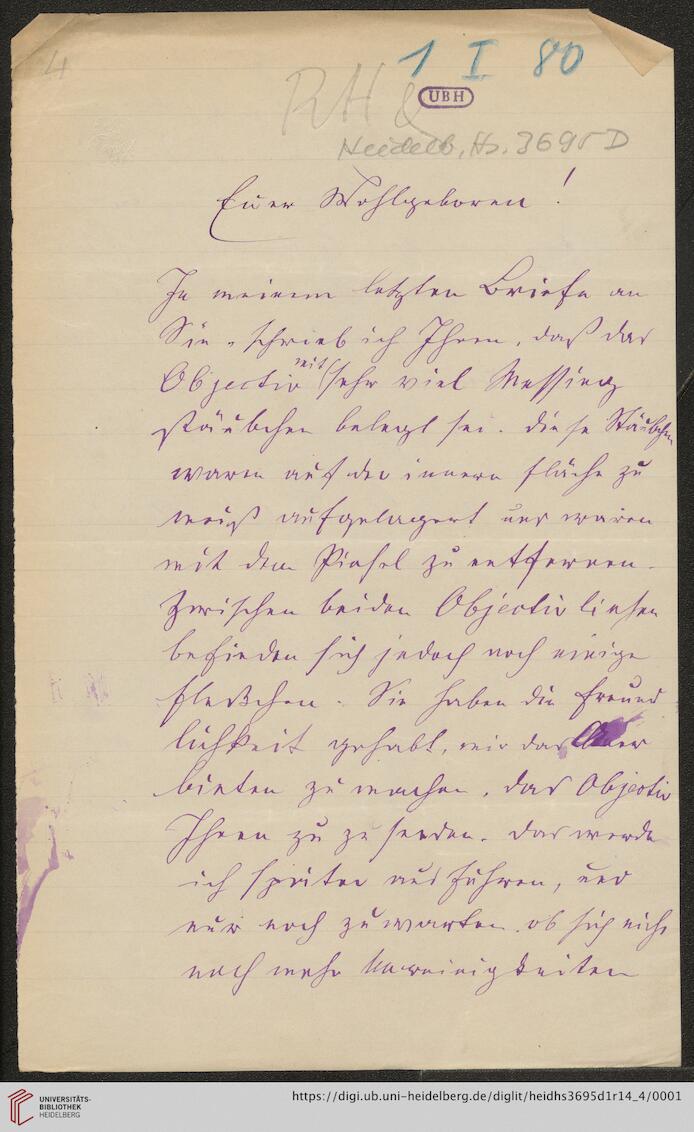 4
1 I 80
RH
UBH
Heidelb. Hs. 3695 D
Euer Wohlgeboren!
In meinem letzten Briefe an
Sie schrieb ich Ihnen, daß das
Objectiv mit sehr viel Messing
stäubchen belegt sei. Diese Stäubchen
waren auf der innern Fläche zu
meist aufgelagert und waren
mit dem Pinsel zu entfernen.
Zwischen beiden Objectivlinsen
befinden sich jedoch noch einige
Sie haben die Freund
lichkeit gehabt, mir das Aner
bieten zu machen, das Objectiv
Ihnen zu zu senden. Das werde
ich später ausführen, und
nur noch zuwarten ob sich nicht
noch mehr Unreinigkeiten
UNIVERSITÄTS-
BIBLIOTHEK
HEIDELBERG
https://digi.ub.uni-heidelberg.de/diglit/heidhs3695d1r14_4/0001